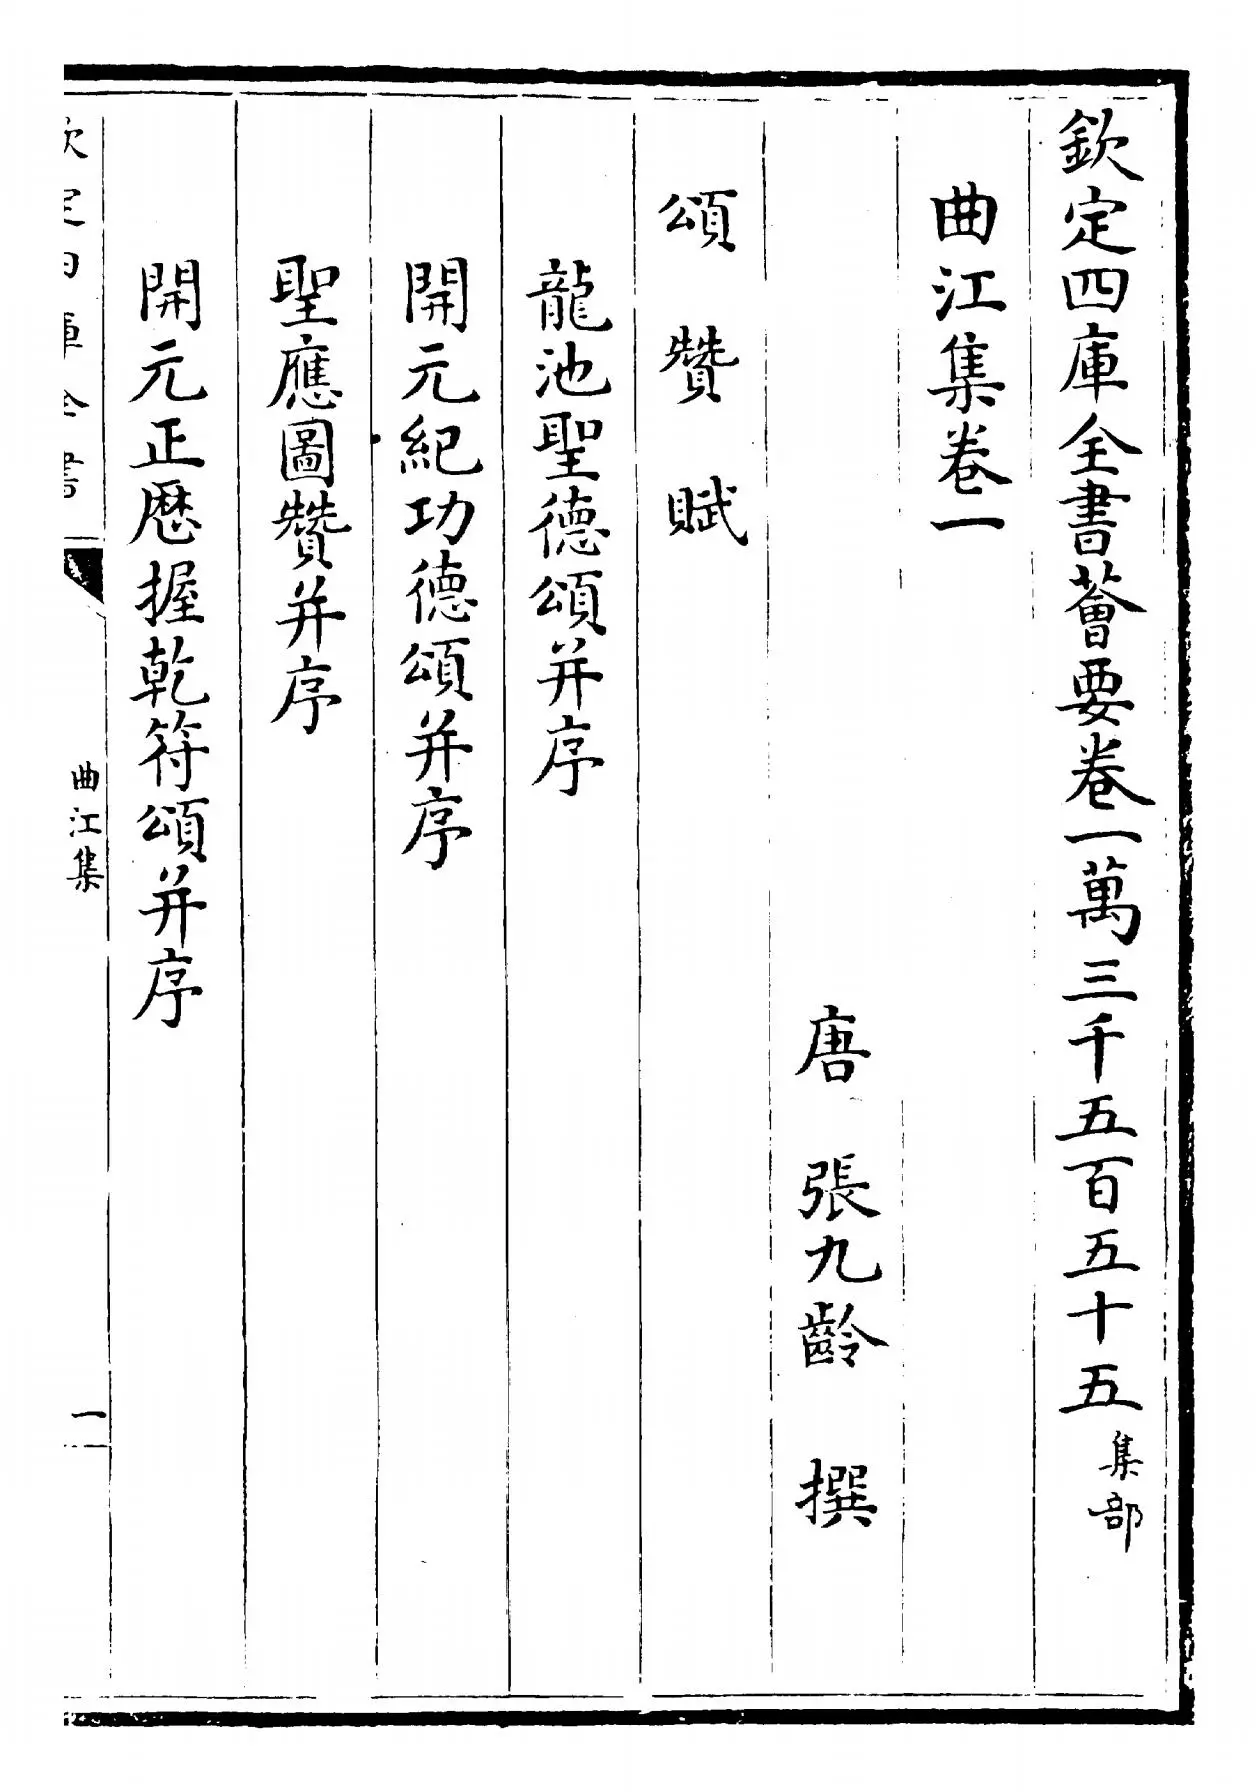 欽定四庫全書薈要卷一萬三千五百五十五集部
曲江集卷一
唐 張九齡 撰
頌 贊 賦
龍池聖德頌并序
開元紀功德頌并序
聖應圖贊并序
開元正厯握乾符頌并序
欽定四庫全書
曲江集
一